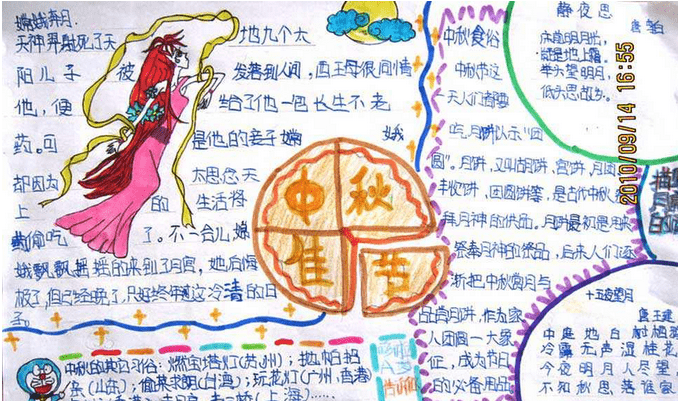 嫦娥奔月
天神羿射死了天地九个太
阳儿子 被发落到人间，西王母很同情
他，便给了他一包长生不老
药。可是他的妻子嫦娥
却因为太思念天
上的生活将
药偷吃了。不一会儿嫦
娥飘飘摇摇的来到了月宫，她后悔
极了，但已经晚了，只好终年过这冷清的日
子。
中秋佳节
中秋食俗
中秋节这
天人们都要
吃月饼以示"团
圆"。月饼，又叫胡饼，宫饼，月团
丰收饼，团圆饼等，是古代中秋
拜月神的供品。月饼最初是用来
祭奉月神的祭品，后来人们逐
渐把中秋赏月与
品尝月饼，作为家
人团圆一大象
征，成为节日
的必备用品
静夜思
床前明月光，
疑是地上霜。
举头望明月，
低头思故乡。
2010/09/14 16:55
十五夜望月
唐 王建
中庭地白树栖鸦
冷露无声湿桂花
今夜明月人尽望
不知秋思落谁家
中秋的其它习俗：燃宝塔灯(苏州)；
(山东)；偷菜求郎(台湾)；玩花灯(广州，香港)
(上海)……